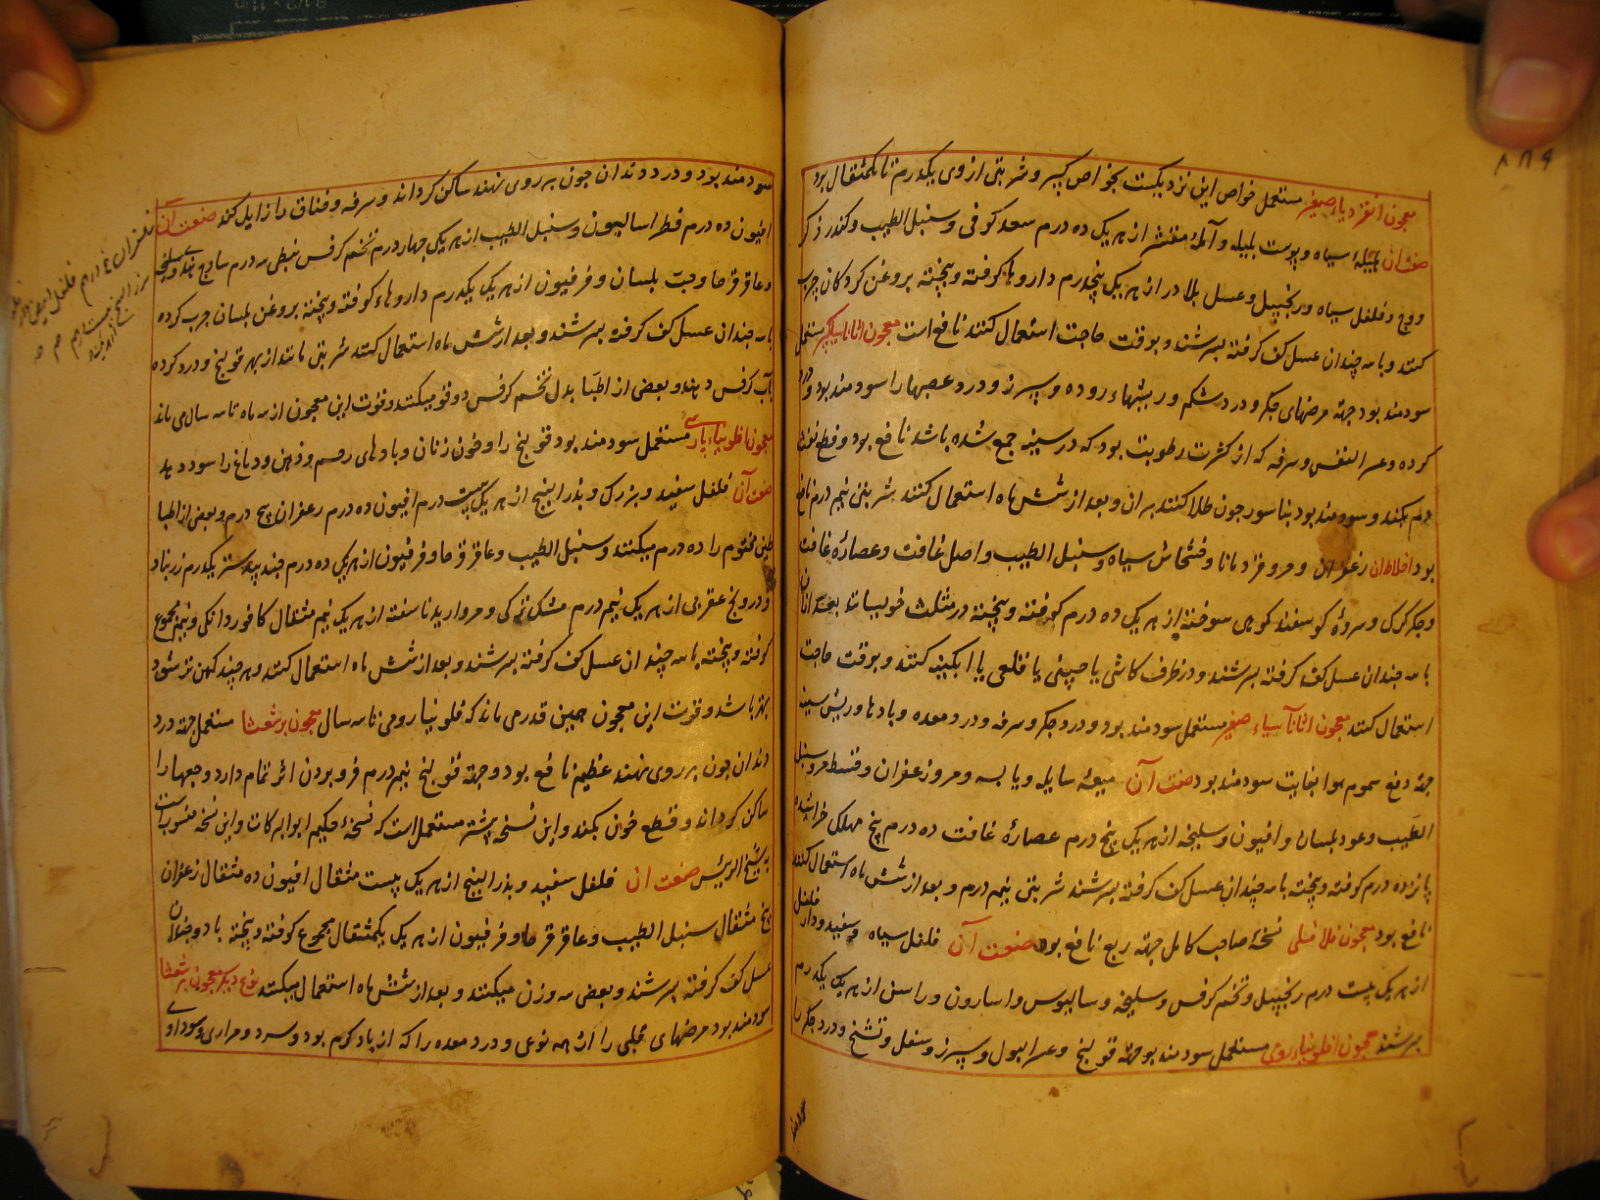 معجون انقردیاء صغیر مستعمل خواص این نزدیکست بخواص کبیر و شربتی از وی یکدرم تا یکمثقال بود
صفت آن هلیلهٔ سیاه و پوست بلیله و آملهٔ مقشر از هر یک ده درم سعد کوفی و سنبل الطیب و کندر ذکر
و وج و فلفل سیاه و زنجبیل و عسل بلادر از هر یک پنجدرم داروها کوفته و بیخته بروغن کردکان چرب
کنند و با سه چندان عسل کف کرفته بسرشند و بوقت حاجت استعمال کنند نافع است معجون اثاناسیا کبیر مستعمل
سودمند بود جهة مرضهای جکر و درد شکم و ریشهاء روده و سپرز و درد عصبها را سودمند بود و درد
کرده و عسر النفس و سرفه که از کثرت رطوبت بود که در سینه جمع شده باشد نافع بود و قطع نفث
دم بکند و سودمند بود بناسور چون طلا کنند بر آن و بعد از شش ماه استعمال کنند شربتی نیم درم نافع
بود اخلاط آن زعفران و مر و قردمانا و خشخاش سیاه و سنبل الطیب و اصل غافت و عصارهٔ غافت
و جکر کرک و سروی کوسفند کوهی سوخته از هر یک ده درم کوفته و بیخته در مثلث خویسانند بعد از آن
با سه چندان عسل کف کرفته بسرشند و در ظرف کاشی یا چینی یا قلعی یا آبکینه کنند و بوقت حاجت
استعمال کنند معجون اثاناسیاء صغیر مستعمل سودمند بود و درد جکر و سرفه و درد معده و بادها و ریش سینه
جهة دفع سموم هوا بغایت سودمند بود صفت آن میعهٔ سایله و یابسه و مر و زعفران و قسط مر و سنبل
الطیب و عود بلسان و افیون و سلیخه از هر یک پنج درم عصارهٔ غافت ده درم بیخ مهلک خراشیده
پانزده درم کوفته و بیخته با سه چندان عسل کف کرفته بسرشند شربتی نیم درم و بعد از شش ماه استعمال کنند
نافع بود معجون فلافلی نسخهٔ صاحب کامل جهة ربع نافع بود صفت آن فلفل سیاه و سفید و دار فلفل
از هر یک بیست درم زنجبیل و تخم کرفس و سلیخه و سالیوس و اسارون و راسن از هر یک یکدرم
بسرشند معجون افلونیاء رومی مستعمل سودمند بود جهة قولنج و عسر البول و سپرز و سعل و تشنج و درد جکر را
سودمند بود و درد دندان چون بر روی نهند ساکن کرداند و سرفه و خناق را زایل کند صفت آن
افیون ده درم فطراسالیون و سنبل الطیب از هر یکی چهار درم تخم کرفس نبطی سه درم ساذج هندی و سلیخه
و عاقرقرحا و حب بلسان و فرفیون از هر یک یکدرم داروهاء کوفته و بیخته بروغن بلسان چرب کرده
با سه چندان عسل کف کرفته بسرشند و بعد از شش ماه استعمال کنند شربتی مانند از بهر قولنج و درد کرده
بآب کرفس دهند و بعضی از اطبا بدل تخم کرفس دوقو میکنند و قوت این معجون از سه ماه تا سه سال می ماند
معجون افلونیاء پارسی مستعمل سودمند بود قولنج را و خون زنان و بادهای رحم و ذهن و دماغ را سود دهد
صفت آن فلفل سفید و بزرک و بذر البنج از هر یک بیست درم افیون ده درم زعفران پنج درم و بعضی از اطبا
طین مختوم را ده درم میکنند و سنبل الطیب و عاقرقرحا و فرفیون از هر یک ده درم جندبیدستر یکدرم زرنباد
و درونج عقربی از هر یک نیم درم مشک ترکی و مروارید ناسفته از هر یک نیم مثقال کافور دانکی و نیم مجموع
کوفته و بیخته با سه چندان عسل کف کرفته بسرشند و بعد از شش ماه استعمال کنند و هر چند کهن تر شود
بهتر باشد و قوت این معجون همین قدر می ماند که فلونیا رومی تا سه سال معجون برشعثا مستعمل جهة درد
دندان چون بر روی نهند عظیم نافع بود و جهة قولنج نیم درم فرو بردن اثر تمام دارد و وجعها را
ساکن کرداند و قطع خون بکند و این نسخه پیشتر مستعمل است که نسخهٔ حکیم ابو البرکات و این نسخه منسوبست
به شیخ الرئیس صفت آن فلفل سفید و بذر البنج از هر یک بیست مثقال افیون ده مثقال زعفران
پنج مثقال سنبل الطیب و عاقرقرحا و فرفیون از هر یک یکمثقال مجموع کوفته و بیخته با دو چندان
عسل کف کرفته بسرشند و بعضی سه وزن میکنند و بعد از شش ماه استعمال میکنند نوع دیکر معجون برشعثا
سودمند بود مرضهای عجلی را از همه نوعی و درد معده را که از باد کرم بود و سرد و مراری و سوداوی
زعفران درم فلفل ابیض